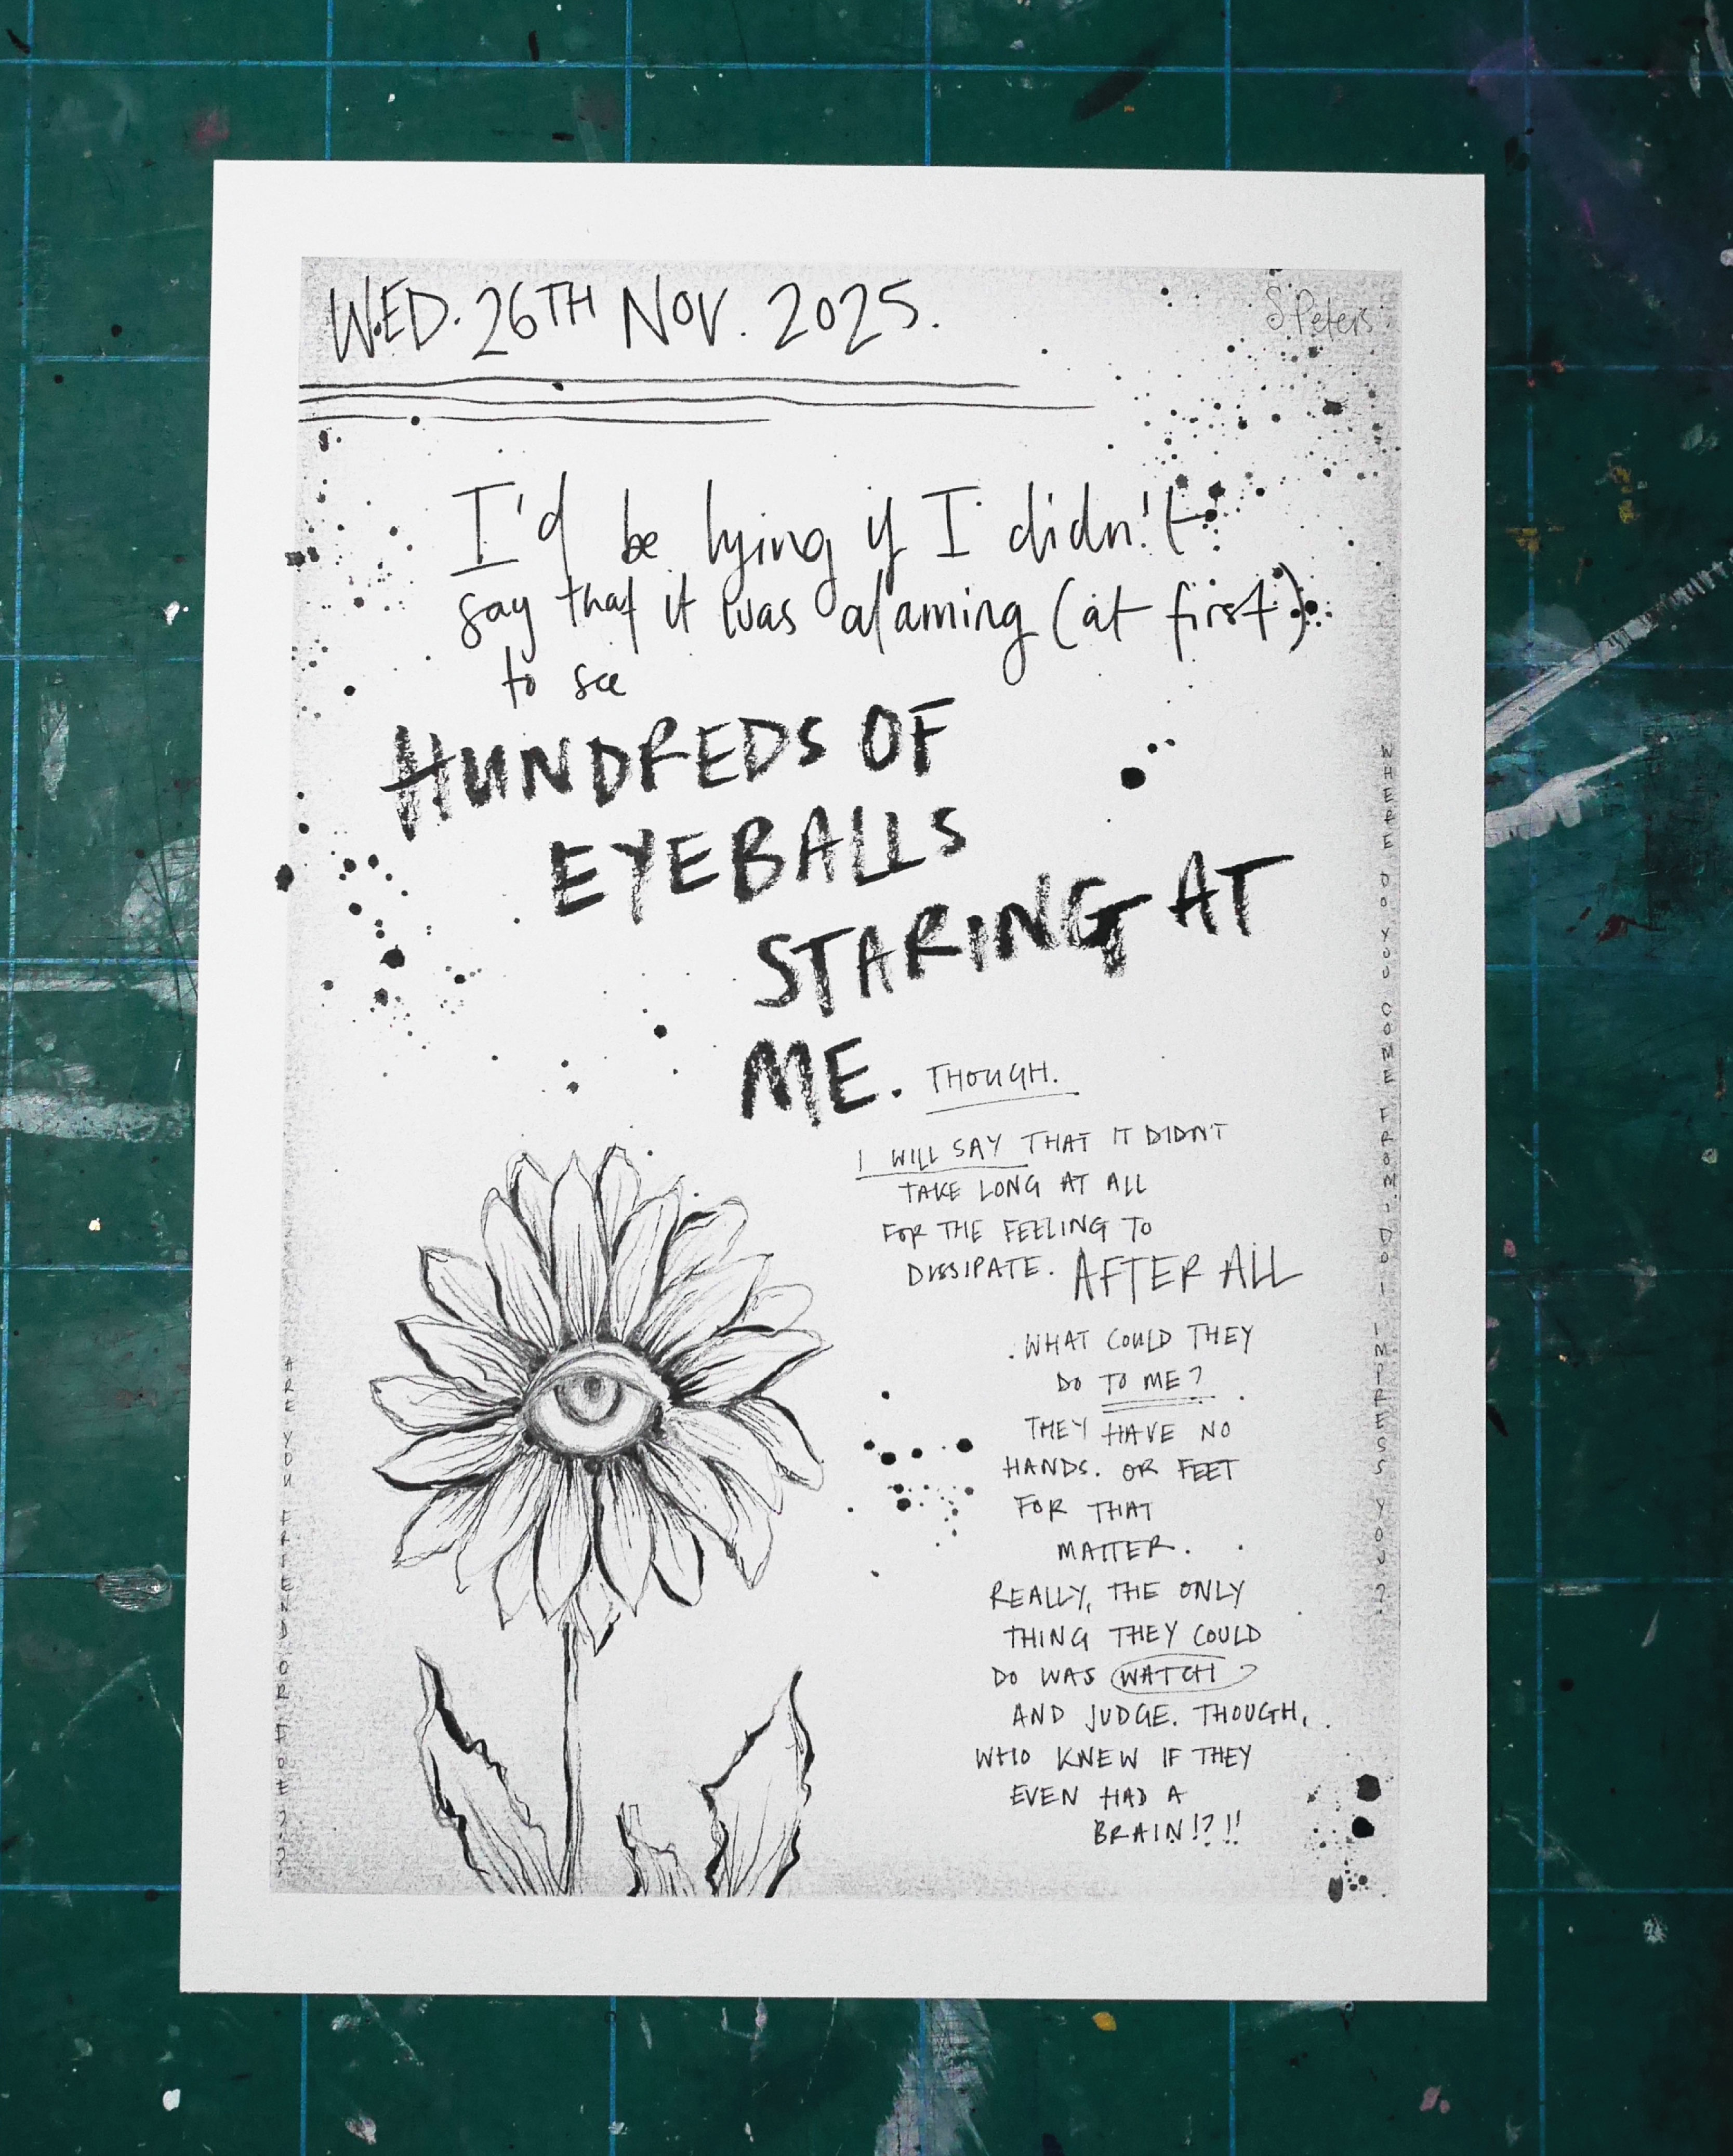 WED. 26TH NOV. 2025.
S Peters
I'd be lying if I didn't
say that it was alaming (at first)
to see
HUNDREDS OF
EYEBALLS
STARING AT
ME. THOUGH.
I WILL SAY THAT IT DIDN'T
TAKE LONG AT ALL
FOR THE FEELING TO
DISSIPATE. AFTER ALL
WHAT COULD THEY
DO TO ME?
THEY HAVE NO
HANDS. OR FEET
FOR THAT
MATTER.
REALLY, THE ONLY
THING THEY COULD
DO WAS WATCH
AND JUDGE. THOUGH,
WHO KNEW IF THEY
EVEN HAD A
BRAIN!?!!
WHERE DO YOU COME FROM? DO I IMPRESS YOU?
ARE YOU FRIEND OR FOE??